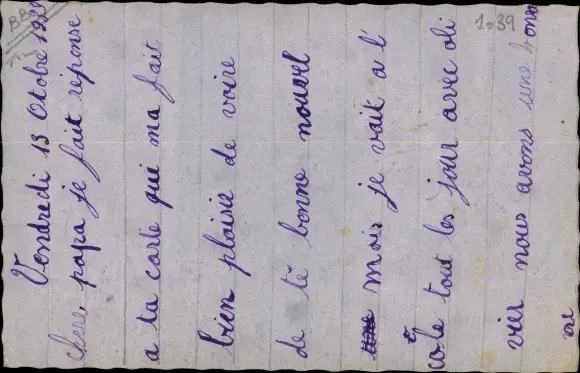 Vendredi 13 Otobre 1939
chere papa je fait réponse
a ta carte qui ma fait
bien plaisir de voire
de tè bonne nouvel
mais je vait a l'
école tout les jour avec oli
vier nous avons une bonne
1-39